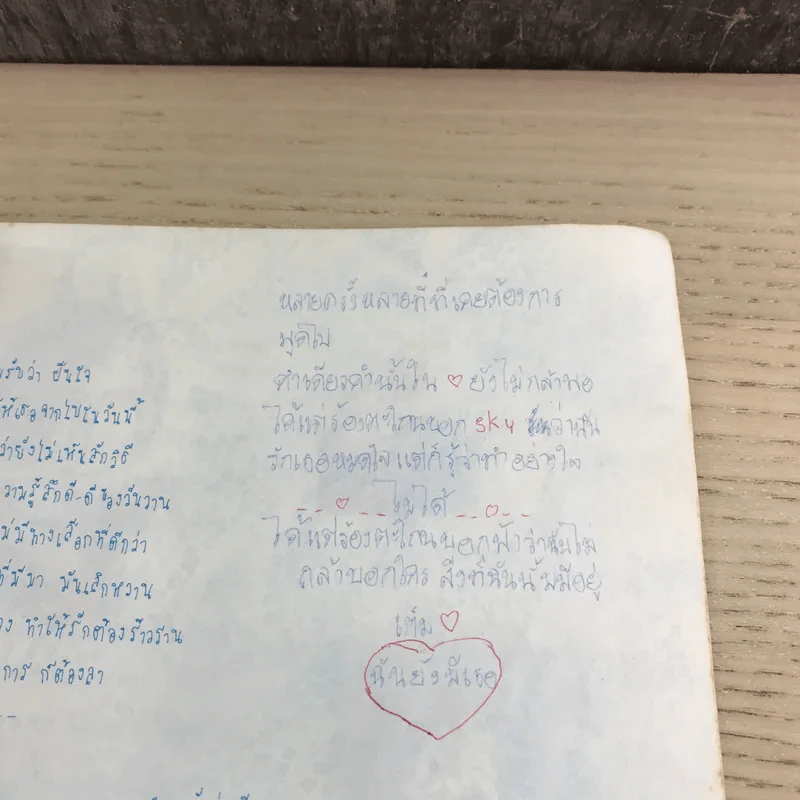 หลายครั้งหลายทีที่เคยต้องการ
พูดไป
คำเดียวคำนั้นใน ♡ ยังไม่กล้าพอ
ได้แต่ร้องตะโกนบอก sky ว่าฉัน
รักเธอหมดใจ แต่ก็รู้ว่าทำอย่างใจ
ไม่ได้
ได้แต่ร้องตะโกนบอกฟ้าว่าฉันไม่
กล้าบอกใคร สิ่งที่ฉันนั้นมีอยู่
เต็ม ♡
ฉันยังมีเธอ
ว่า ยืนใจ
ให้เธอจากไปในวันนี้
ว่ายังไม่เห็นสักวิธี
ความรู้สึกดี-ดีของวันวาน
มีทางเลือกที่ดีกว่า
ที่มีมา มันเลิกหวาน
ทำให้รักต้องร้าวราน
การ ก็ต้องลา